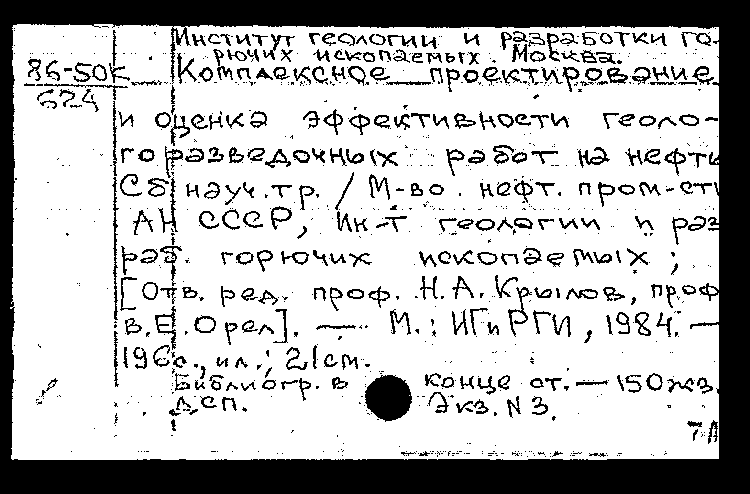 Институт геологии и разработки го-
рючих ископаемых. Москва.
86-50к Комплексное проектирование
624
и оценка эффективности геоло-
горазведочных работ на нефть
Сб науч.тр. / М-во. нефт. пром-сти
АН СССР, Ин-т геологии и раз
раб. горючих ископаемых ;
[Отв. ред. проф. Н.А. Крылов, проф
В.Е. Орел]. — М.: ИГиРГИ, 1984. —
196с., ил.; 21см.
Библиогр. в конце ст. — 150экз.
ДСП. Экз. N 3.